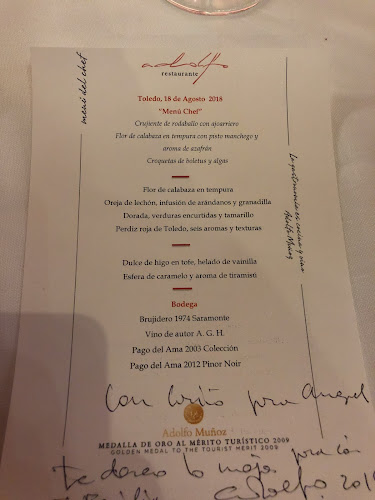 adolfo
restaurante
menú del chef
Toledo, 18 de Agosto 2018
“Menú Chef”
Crujiente de rodaballo con ajoarriero
Flor de calabaza en tempura con pisto manchego y
aroma de azafrán
Croquetas de boletus y algas
La gastronomía es cocina y vino
Adolfo Muñoz
Flor de calabaza en tempura
Oreja de lechón, infusión de arándanos y granadilla
Dorada, verduras encurtidas y tamarillo
Perdiz roja de Toledo, seis aromas y texturas
Dulce de higo en tofe, helado de vainilla
Esfera de caramelo y aroma de tiramisú
Bodega
Brujidero 1974 Saramonte
Vino de autor A. G. H.
Pago del Ama 2003 Colección
Pago del Ama 2012 Pinor Noir
Con cariño para Angel
Adolfo Muñoz
MEDALLA DE ORO AL MÉRITO TURÍSTICO 2009
GOLDEN MEDAL TO THE TOURIST MERIT 2009
te deseo lo mejor
Adolfo